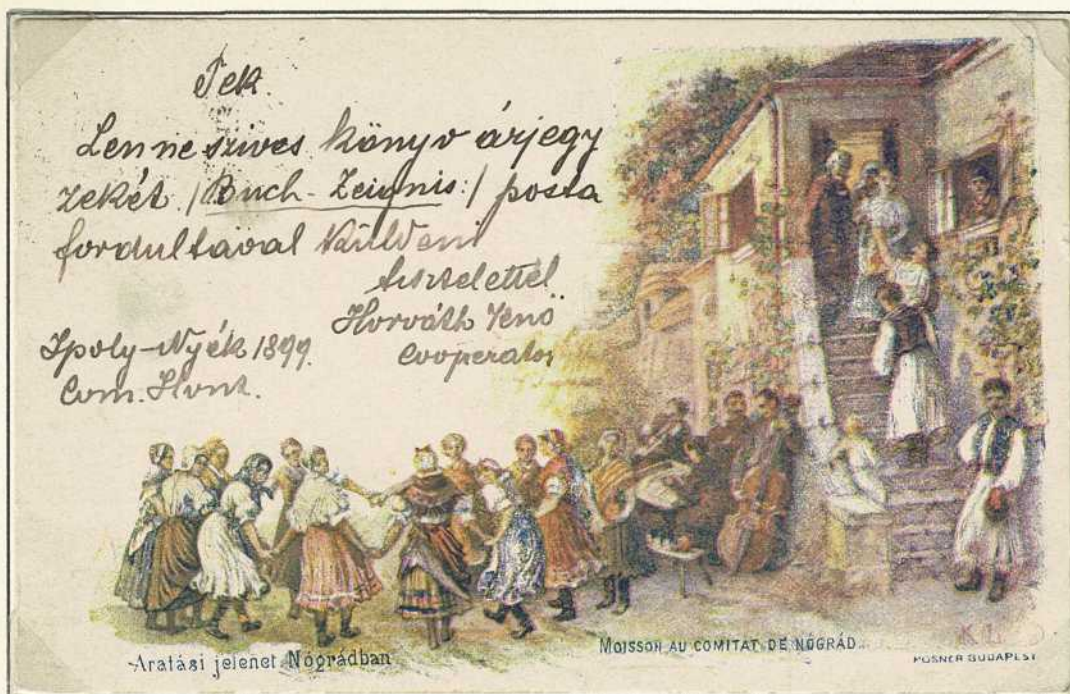 Tek.
Lenne szives könyv árjegy
zékét /Buch-Zeignis:/ posta
fordultával küldeni
tisztelettel
Horváth Jenő
Cooperator
Ipoly-Nyék 1899.
Com. Hont.
Aratási jelenet Nógrádban
MOISSON AU COMITAT DE NÓGRÁD
POSNER BUDAPEST